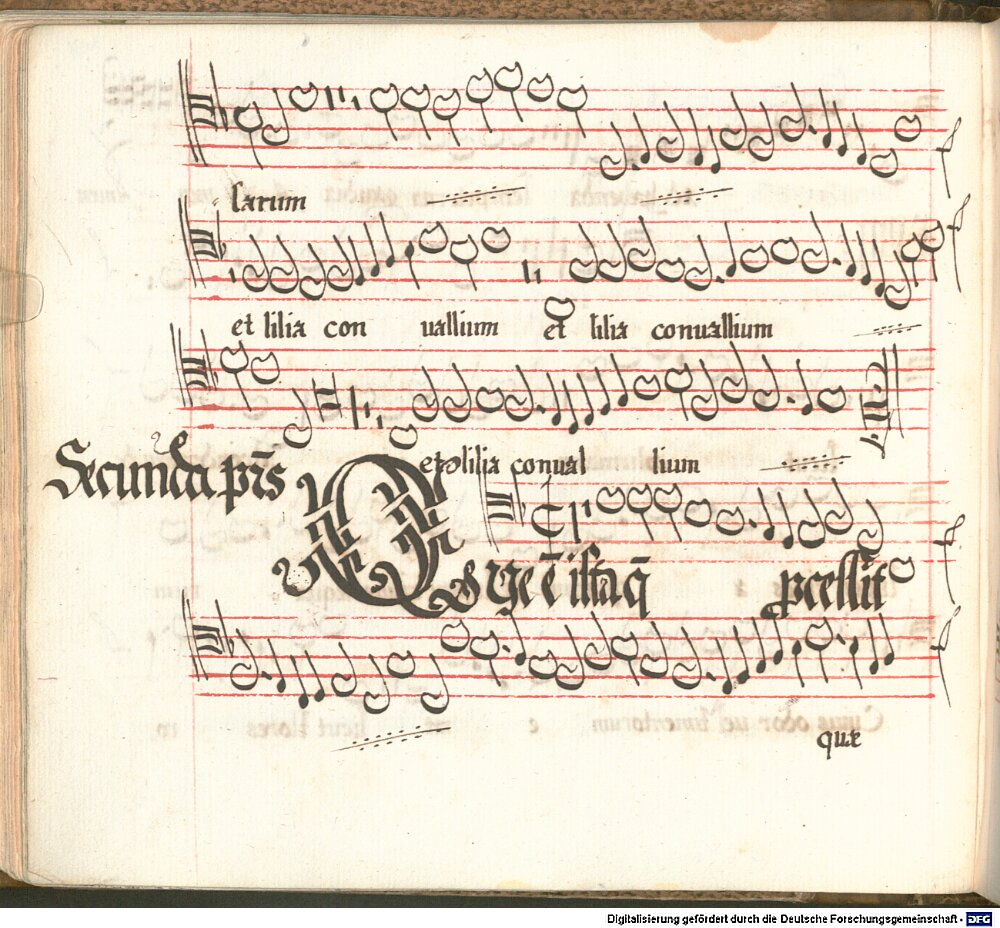 larum
et lilia con uallium et lilia conuallium
et lilia conual lium
Secunda p̄rs
Que ē ista q̄ ꝓcessit
quæ
Digitalisierung gefördert durch die Deutsche Forschungsgemeinschaft - DFG